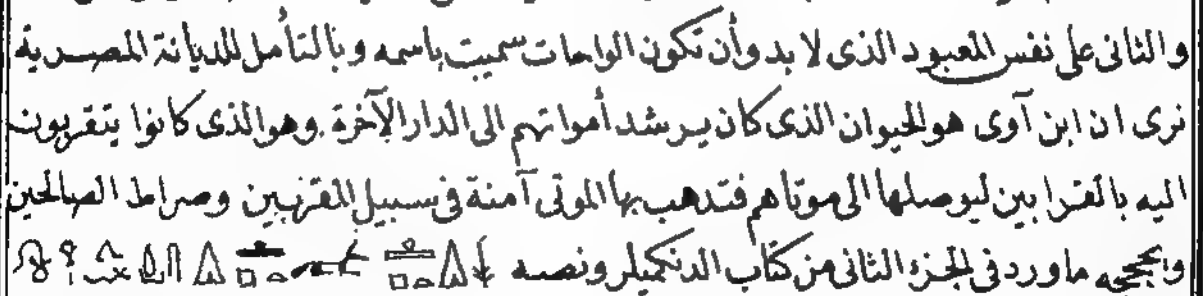 والثانى على نفس المعبود الذى لا بد وأن تكون الواحات سميت باسمه وبالتأمل للديانة المصرية
نرى ان ابن آوى هو الحيوان الذى كان يرشد أمواتهم الى الدار الآخرة . وهو الذى كانوا يتقربون
اليه بالقرابين ليوصلها الى موتاهم فتذهب بها الموتى آمنة فى سبيل المقربين وصراط الصالحين
ما ورد فى الجزء الثانى من كتاب الدنكميلر ونصه